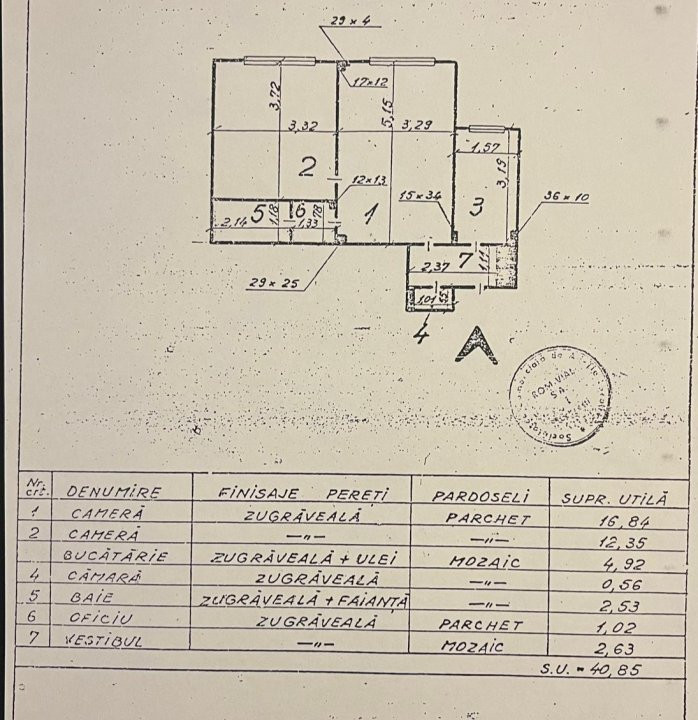 29 x 4
17x12
3,72
5,15
3,32
3,29
1,57
3,15
2
12x13
15x34
36 x 10
5
6
1,18
,78
2,14
1,33
1
3
7
2,37
1,11
29 x 25
1,01
,55
4
ROM-VIAL
S.A.
Nr. crt. DENUMIRE FINISAJE PEREȚI PARDOSELI SUPR. UTILĂ
1 CAMERĂ ZUGRĂVEALĂ PARCHET 16,84
2 CAMERĂ —"— —"— 12,35
BUCĂTĂRIE ZUGRĂVEALĂ + ULEI MOZAIC 4,92
4 CĂMARĂ ZUGRĂVEALĂ —"— 0,56
5 BAIE ZUGRĂVEALĂ + FAIANȚĂ —"— 2,53
6 OFICIU ZUGRĂVEALĂ PARCHET 1,02
7 VESTIBUL —"— MOZAIC 2,63
S.U. = 40,85